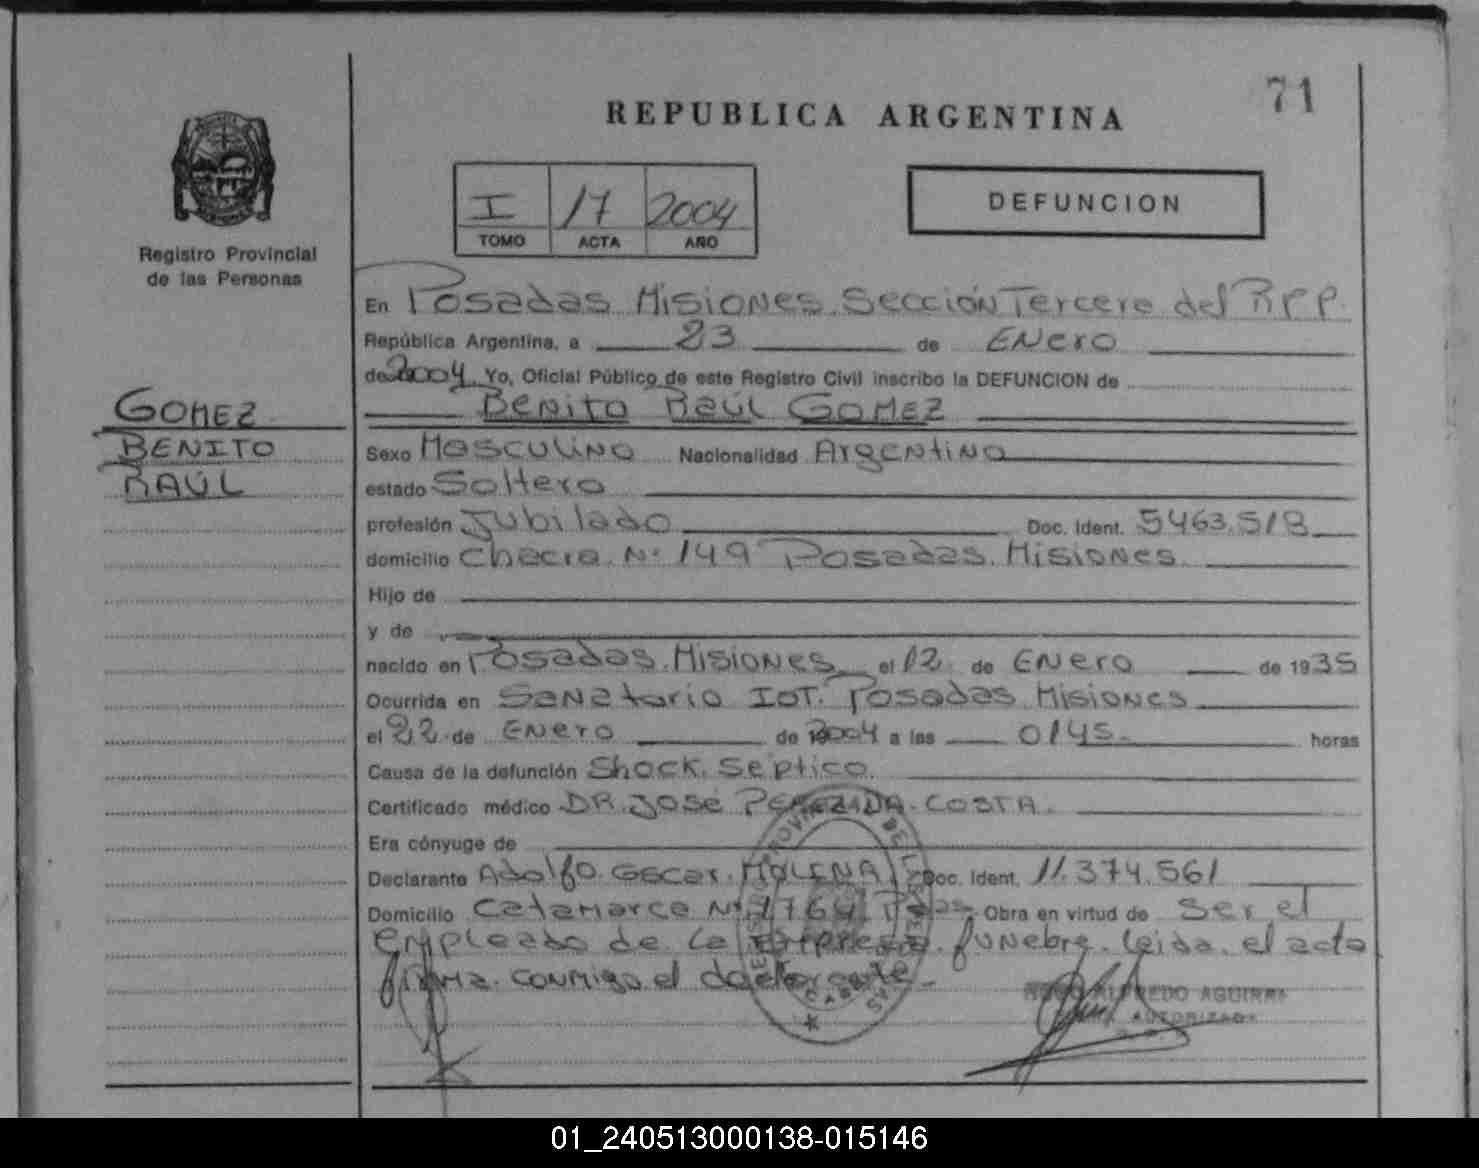 71
REPUBLICA ARGENTINA
I 17 2004
TOMO ACTA AÑO
DEFUNCION
Registro Provincial
de las Personas
GOMEZ
BENITO
RAÚL
En Posadas. Misiones. Sección Tercera del R.P.P.
República Argentina, a 23 de ENero
de 2004 Yo, Oficial Público de este Registro Civil inscribo la DEFUNCION de
BENito Raúl GOMEZ
Sexo Masculino Nacionalidad Argentina
estado Soltero
profesión Jubilado Doc. Ident. 5463.518
domicilio Chacra. Nº 149 Posadas. Misiones.
Hijo de
y de
nacido en Posadas. Misiones el 12 de ENero de 1935
Ocurrida en Sanatorio IOT. Posadas Misiones
el 22 de ENero de 2004 a las 0145. horas
Causa de la defunción Shock. Séptico.
Certificado médico DR. José COSTA.
Era cónyuge de
Declarante Adolfo. Oscar. MOLINA Doc. Ident. 11.374.561
Domicilio Catamarca Nº 1764 Pdas. Obra en virtud de Ser el
empleado de la Empresa. fúnebre. Leida. el acta
firma. conmigo el
HUGO ALFREDO AGUIRRE
AUTORIZADO
01_240513000138-015146